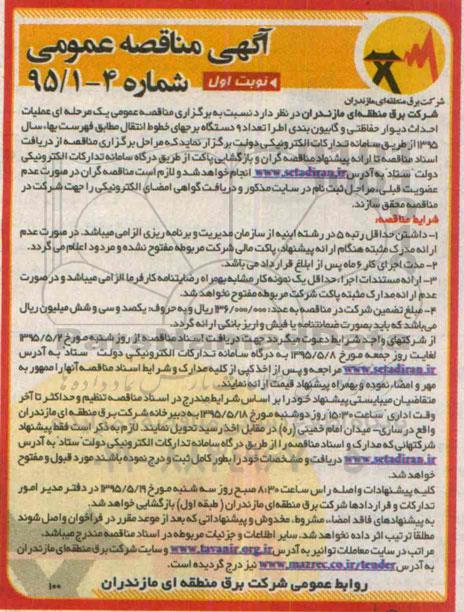 آگهی مناقصه عمومی
شماره ۴-۹۵/۱
نوبت اول
شرکت برق منطقه‌ای مازندران
شرکت برق منطقه‌ای مازندران در نظر دارد نسبت به برگزاری مناقصه عمومی یک مرحله ای عملیات
احداث دیوار حفاظتی و گابیون بندی اطراف تعداد ۹ دستگاه برجهای خطوط انتقال مطابق فهرست بها، سال
۱۳۹۵ از طریق سامانه تدارکات الکترونیکی دولت برگزار نماید که مراحل برگزاری مناقصه از دریافت
اسناد مناقصه تا ارائه پیشنهاد مناقصه گران و بازگشایی پاکت از طریق درگاه سامانه تدارکات الکترونیکی
دولت ستاد به آدرس www.setadiran.ir انجام خواهد شد و لازم است مناقصه گران در صورت عدم
عضویت قبلی، مراحل ثبت نام در سایت مذکور و دریافت گواهی امضای الکترونیکی را جهت شرکت در
مناقصه محقق سازند.
شرایط مناقصه:
۱- داشتن حداقل رتبه ۵ در رشته ابنیه از سازمان مدیریت و برنامه ریزی الزامی میباشد. در صورت عدم
ارائه مدرک مثبته هنگام ارائه پیشنهاد، پاکت مالی شرکت مربوطه مفتوح نشده و مردود اعلام می گردد.
۲- مدت اجرای کار ۶ ماه پس از ابلاغ قرارداد می باشد.
۳- ارائه مستندات اجرا، حداقل یک نمونه کار مشابه بهمراه رضایتنامه کارفرما الزامی میباشد و در صورت
عدم ارائه مدارک مثبته پاکت شرکت مربوطه مفتوح نخواهد شد.
۴- مبلغ تضمین شرکت در مناقصه به عدد: ۱۳۶/۰۰۰/۰۰۰ ریال و به حروف: یکصد و سی و شش میلیون ریال
می‌باشد که باید بصورت ضمانتنامه یا فیش واریز بانکی ارائه گردد.
از شرکتهای واجد شرایط دعوت میگردد جهت دریافت اسناد مناقصه از روز شنبه مورخ ۱۳۹۵/۵/۲
لغایت روز جمعه مورخ ۱۳۹۵/۵/۸ به درگاه سامانه تدارکات الکترونیکی دولت ستاد به آدرس
www.setadiran.ir مراجعه و پس از اخذ کپی از کلیه مدارک و شرایط اسناد مناقصه آنها را ممهور به
مهر و امضا، نموده و بهمراه پیشنهاد قیمت ارائه نمایند
متقاضیان میبایستی پیشنهاد خود را بر اساس شرایط مندرج در اسناد مناقصه تنظیم و حداکثر تا آخر
وقت اداری ساعت ۱۵:۳۰ روز دوشنبه مورخ ۱۳۹۵/۵/۱۸ به دبیرخانه شرکت برق منطقه ای مازندران
واقع در ساری- میدان امام خمینی (ره) در مقابل اخذ رسید تحویل نمایند. لازم به ذکر است فقط پیشنهاد
شرکتهایی که مدارک و اسناد مناقصه را از طریق درگاه سامانه تدارکات الکترونیکی دولت ستاد به آدرس
www.setadiran.ir دریافت و مشخصات خود را بطور کامل ثبت و درج نموده باشند مورد قبول و مفتوح
خواهد شد.
کلیه پیشنهادات واصله راس ساعت ۸:۳۰ صبح روز سه شنبه مورخ ۱۳۹۵/۵/۱۹ در دفتر مدیر امور
تدارکات و قراردادها شرکت برق منطقه‌ای مازندران (طبقه اول) بازگشایی خواهد شد.
به پیشنهادهای فاقد امضا، مشروط، مخدوش و پیشنهاداتی که بعد از موعد مقرر در فراخوان واصل شوند
مطلقا ترتیب اثر داده نخواهد شد. سایر اطلاعات و جزئیات مربوطه در اسناد مناقصه مندرج میباشد.
مراتب در سایت معاملات توانیر به آدرس www.tavanir.org.ir و سایت شرکت برق منطقه‌ای مازندران
به آدرس www.mazrec.co.ir/tender نیز درج گردیده است.
روابط عمومی شرکت برق منطقه ای مازندران
۱۰۰